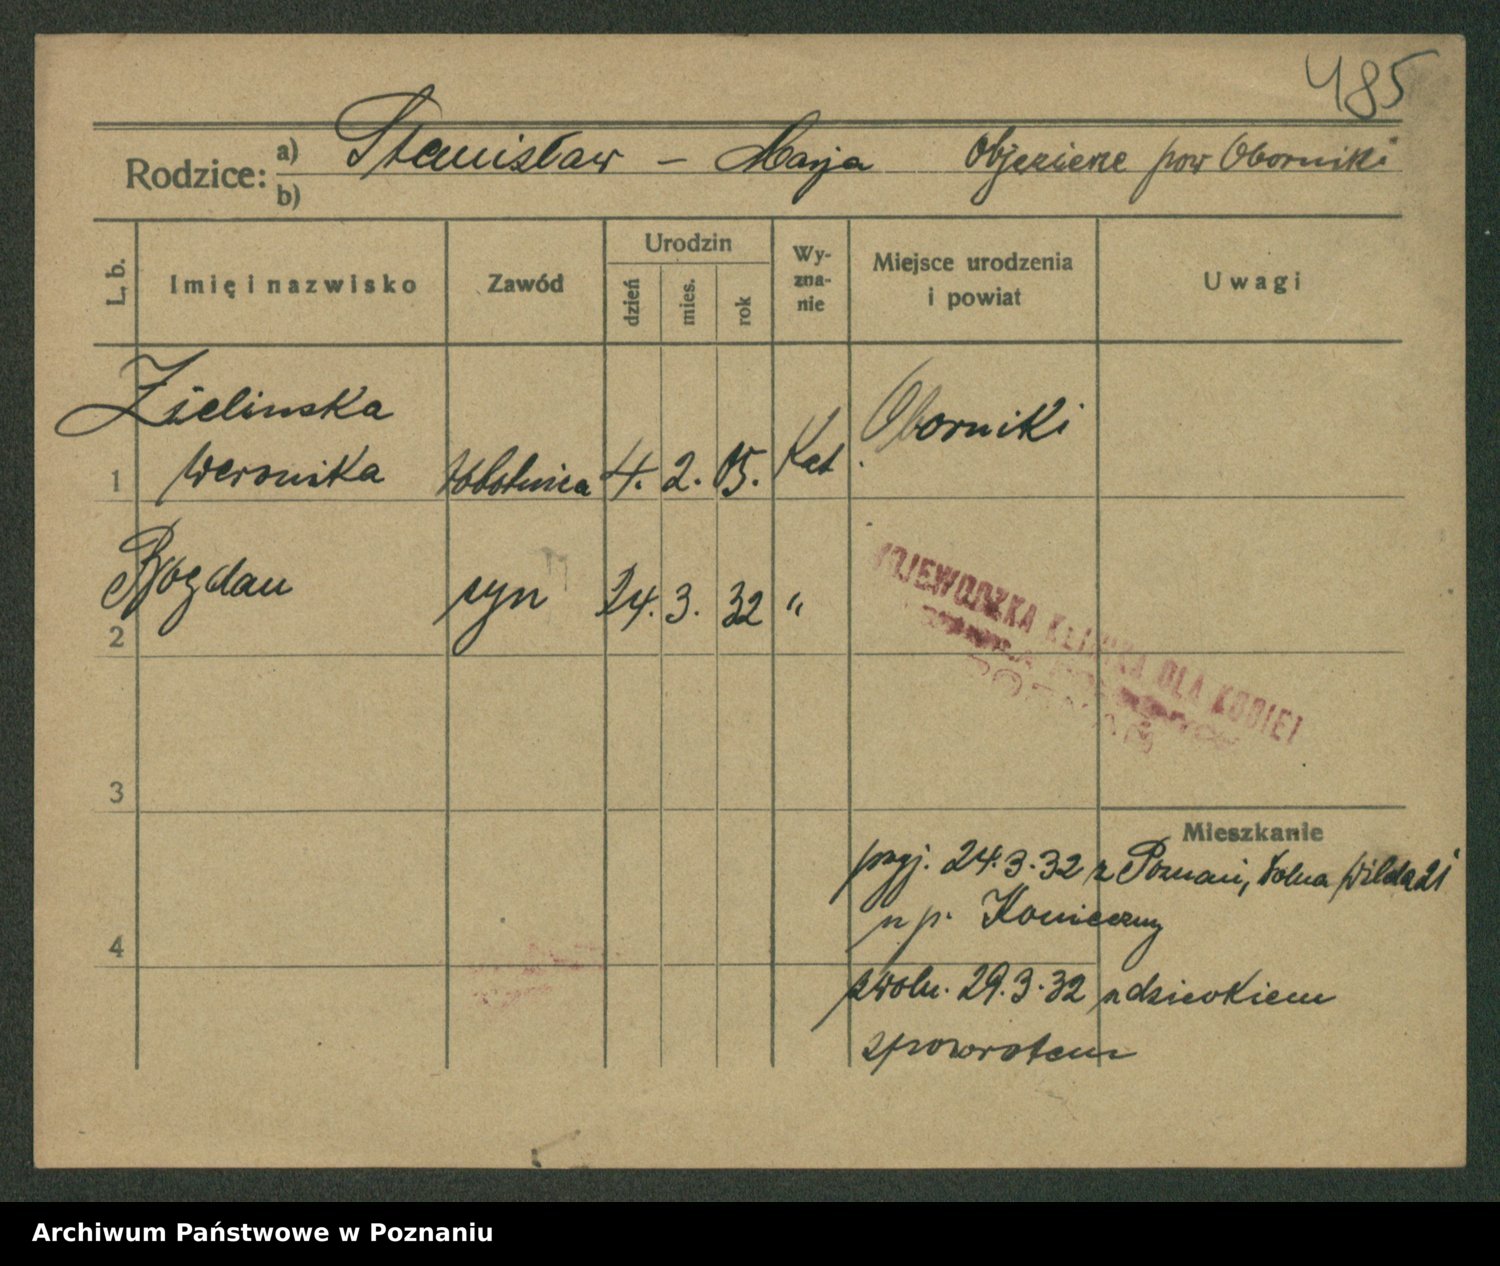 485
Rodzice: a) Stanisław – Marja Objezierze pow Oborniki
b)
L. b. Imię i nazwisko Zawód Urodzin dzień mies. rok Wy-zna-nie Miejsce urodzenia i powiat Uwagi
Zielinska
1 Weronika robotnica 4. 2. 05. Kat Oborniki
Bogdan syn 24. 3. 32 "
2
WOJEWODZKA KLINIKA DLA KOBIET
3
Mieszkanie
przyj. 24.3.32 z Poznań, Dolna Wilda 21
u p. Konieczny
4
zwoln. 29.3.32 z dzieckiem
zpowrotem
Archiwum Państwowe w Poznaniu